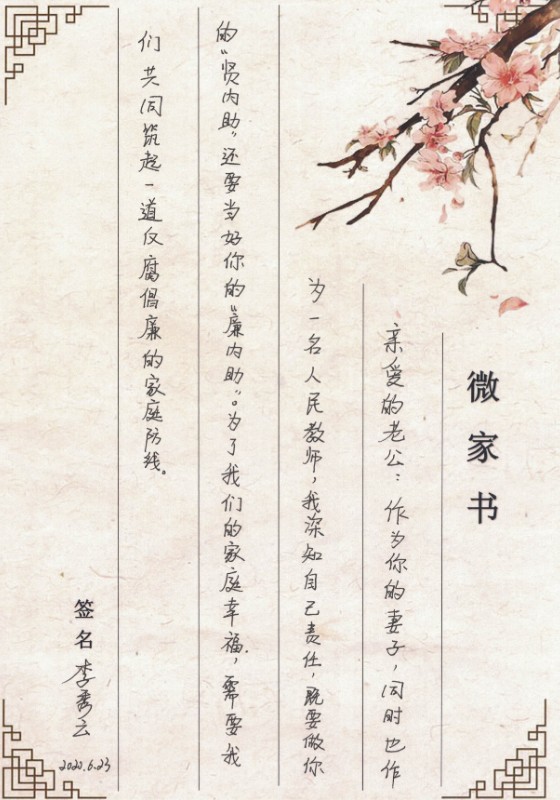 微家书
亲爱的老公：作为你的妻子，同时也作
为一名人民教师，我深知自己责任，既要做你
的“贤内助”还要当好你的“廉内助”。为了我们的家庭幸福，需要我
们共同筑起一道反腐倡廉的家庭防线。
签名 李秀云
2020.6.23